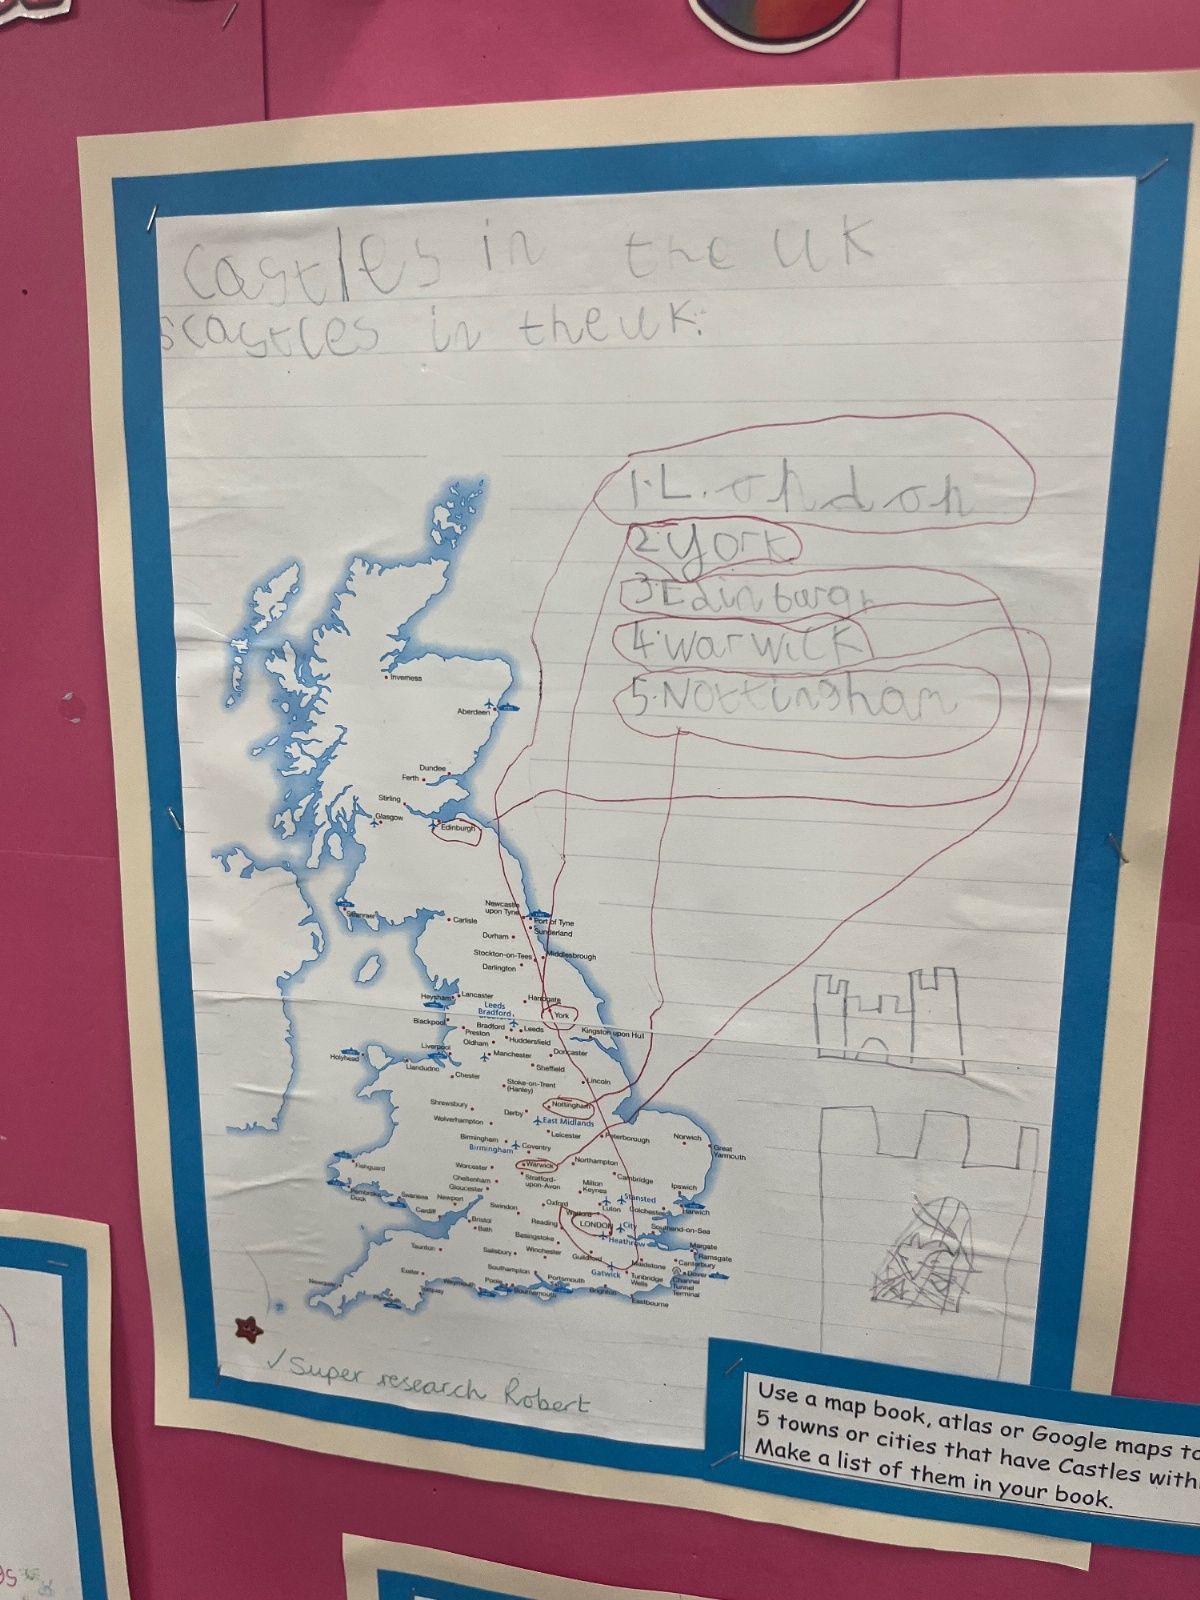 Castles in the UK
5castles in the UK:
1.L.ondon
2.York
3.Edinburgh
4.warwick
5.Nottingham
Inverness
Aberdeen
Dundee
Perth
Stirling
Glasgow
Edinburgh
Newcastle
upon Tyne
Port of Tyne
Sunderland
Stranraer
Carlisle
Durham
Stockton-on-Tees
Middlesbrough
Darlington
Heysham
Lancaster
Harrogate
Leeds
Bradford
York
Blackpool
Bradford
Leeds
Kingston upon Hull
Preston
Huddersfield
Oldham
Liverpool
Manchester
Doncaster
Holyhead
Sheffield
Llandudno
Chester
Lincoln
Stoke-on-Trent
(Hanley)
Shrewsbury
Derby
Nottingham
Wolverhampton
East Midlands
Leicester
Peterborough
Norwich
Great
Yarmouth
Birmingham
Birmingham
Coventry
Fishguard
Worcester
Warwick
Northampton
Cambridge
Cheltenham
Stratford-
upon-Avon
Milton
Keynes
Ipswich
Gloucester
Pembroke
Dock
Swansea
Newport
Oxford
Stansted
Luton
Colchester
Harwich
Cardiff
Swindon
Watford
Bristol
Reading
LONDON
City
Southend-on-Sea
Bath
Basingstoke
Heathrow
Margate
Ramsgate
Taunton
Salisbury
Winchester
Guildford
Maidstone
Canterbury
Dover
Exeter
Southampton
Gatwick
Tunbridge
Wells
Channel
Tunnel
Terminal
Newquay
Weymouth
Poole
Portsmouth
Bournemouth
Brighton
Eastbourne
Plymouth
Torquay
✓ Super research Robert
Use a map book, atlas or Google maps to
5 towns or cities that have Castles with
Make a list of them in your book.